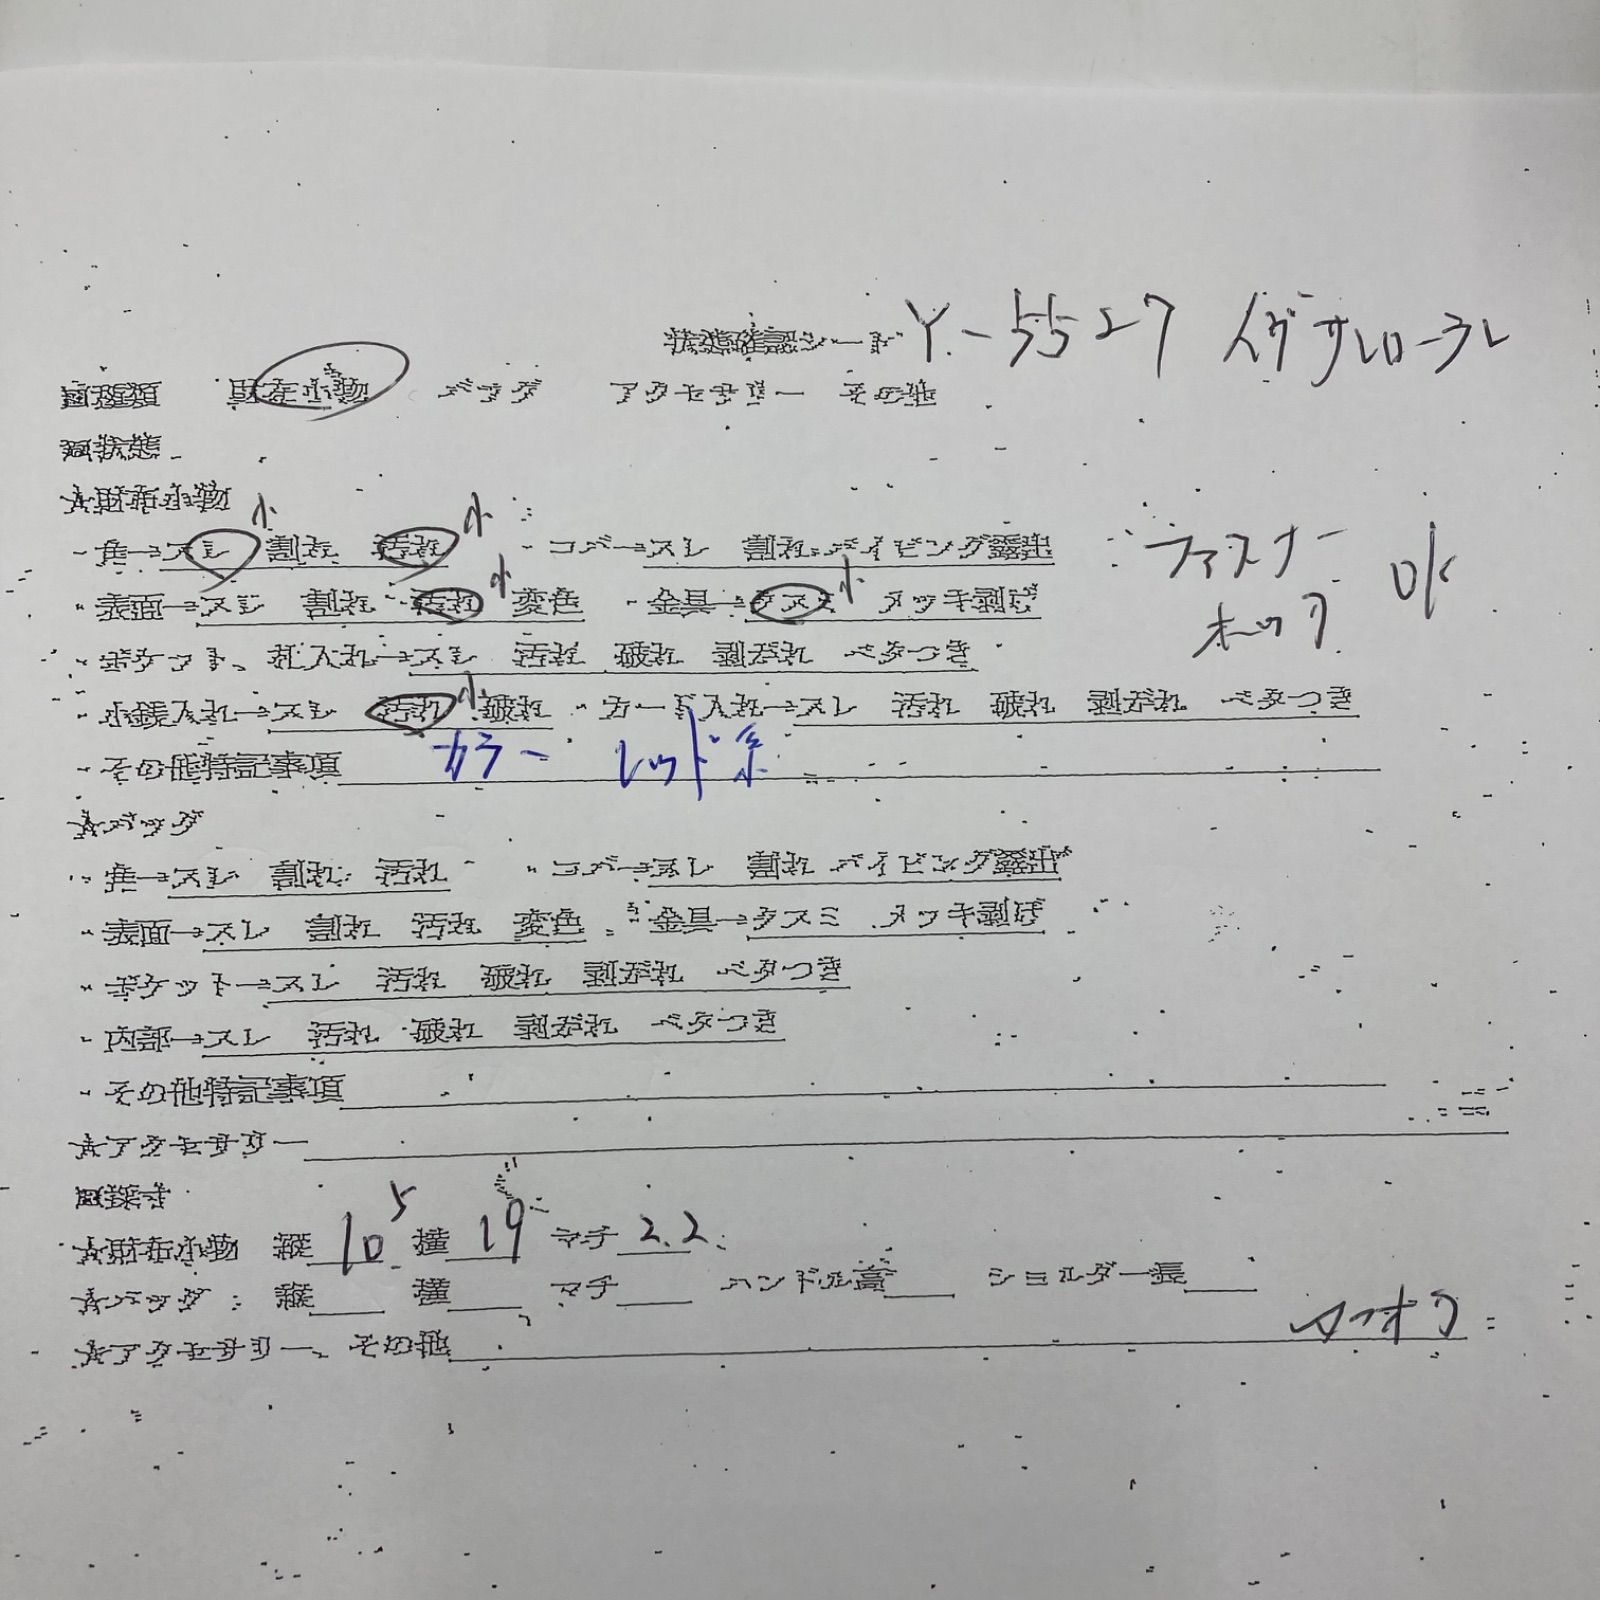 状態確認シート Y-5527 イヴサンローラン
□種類 財布小物 バッグ アクセサリー その他
□状態
☆財布小物
・角→スレ小 割れ 汚れ小 ・コバ→スレ 割れ パイピング露出
ファスナー
・表面→スレ 割れ 汚れ小 変色 ・金具→クスミ小 メッキ剥げ
ホック OK
・ポケット、札入れ→スレ 汚れ 破れ 剥がれ ベタつき
・小銭入れ→スレ 汚れ小 破れ ・カード入れ→スレ 汚れ 破れ 剥がれ ベタつき
・その他特記事項 カラー レッド系
☆バッグ
・角→スレ 割れ 汚れ ・コバ→スレ 割れ パイピング露出
・表面→スレ 割れ 汚れ 変色 ・金具→クスミ メッキ剥げ
・ポケット→スレ 汚れ 破れ 剥がれ ベタつき
・内部→スレ 汚れ 破れ 剥がれ ベタつき
・その他特記事項
☆アクセサリー
□採寸
☆財布小物 縦 10.5 横 19 マチ 2.2
☆バッグ 縦 横 マチ ハンドル高 ショルダー長
☆アクセサリー、その他